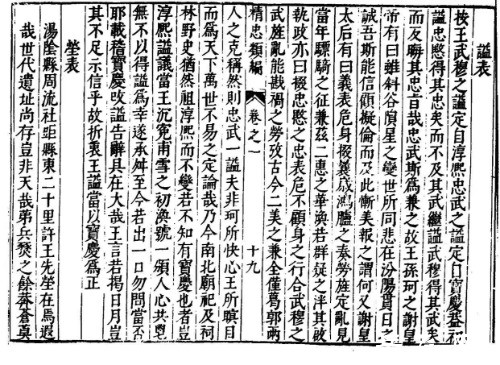 謚表
按王武穆之謚定自淳熙忠武之謚定自寶慶蓋初
謚忠愍得其忠矣而不及其武繼謚武穆得其武矣
而反晦其忠旨哉忠武斯爲兼之故王孫珂之謝
帝有曰雖斜谷隕星之變世所同悲在汾陽貫日之
誠吾斯能信顧擬倫而及此慚美報之謂何又謝皇
太后有曰義表危身掇義成鴻臚之奏勞旌定亂見
當年驃騎之征兼茲二惠之華渙若群疑之泮其被
執政亦曰掇忠愍之忠表危不顧身之行合武穆之
武旌亂能戡禍之勞攷古今二美之兼全僅爲郭兩
精忠類編
卷之一
十九
人之克稱然則忠武一謚夫非珂所快心王所瞑目
而爲天下萬世不易之定論哉乃今南北廟祀及祠
林野史猶然祖淳熙而不變若不知有寶慶也者豈
淳熙謚議當王沉寃甫雪之初渙號一頒人心共
無不以得謚爲幸遂承舛至今若出一口勿問當否
耶載稽寶慶改謚告辭具在大哉王言若揭日月豈
其不足示信乎故折衷王謚當以寶慶爲正
塋表
湯陰縣周流社距縣東二十里許王先塋在焉遐
哉世代遺址尚存豈非天哉弟兵燹之餘莽蒼真